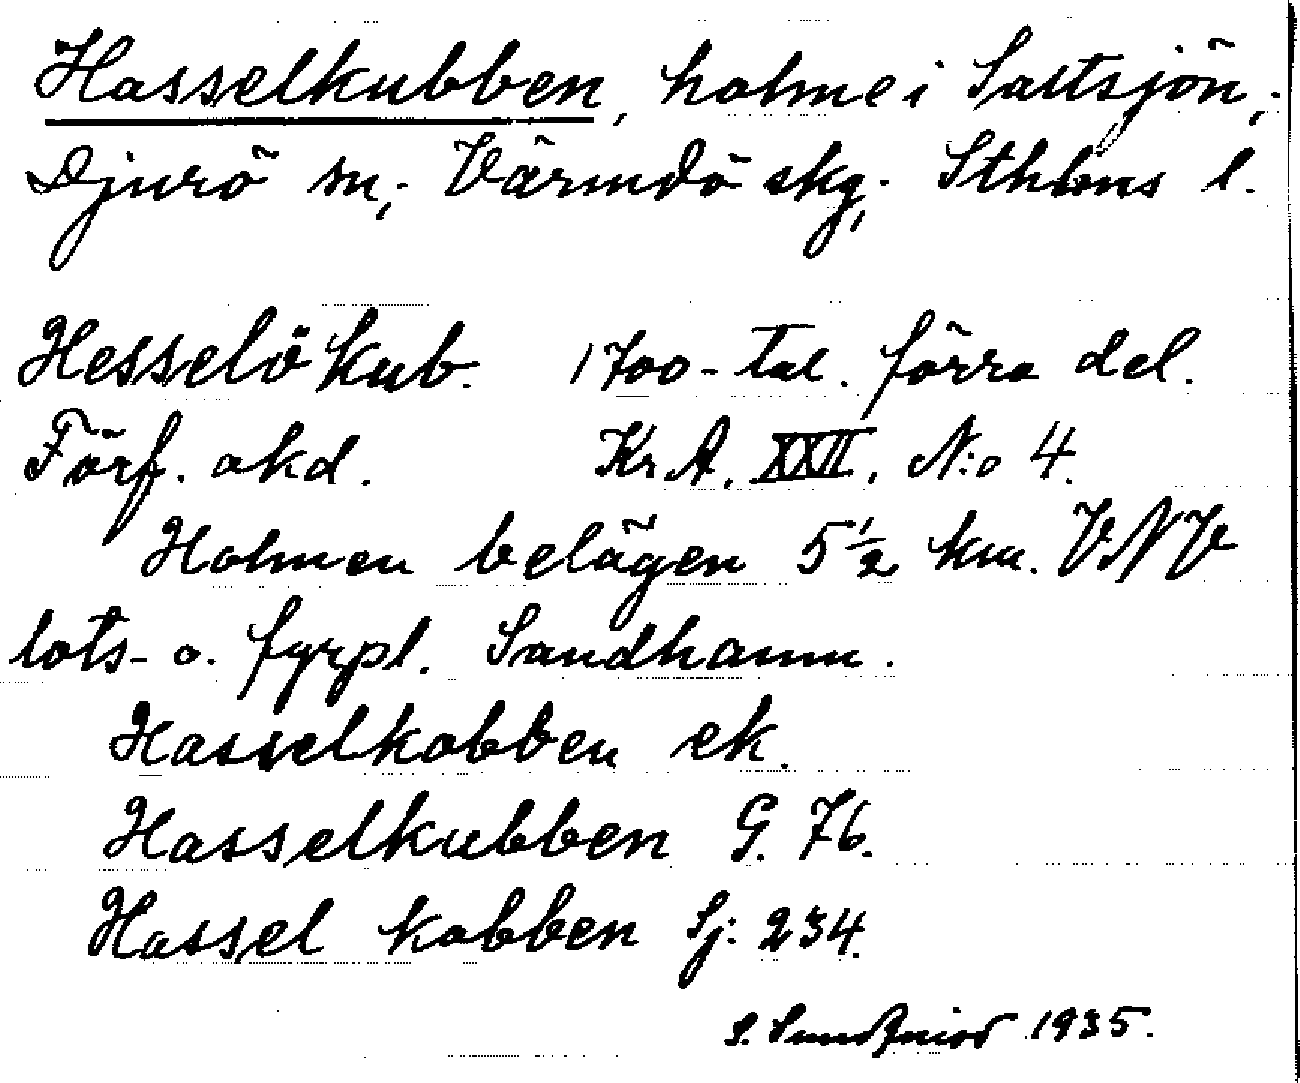 Hasselkubben, holme i Saltsjön,
Djurö sn, Värmdö skg, Sthlms l.
Hesselö kub. 1700-tal. förra del.
Förf. okd. Kr A. XXII, N:o 4.
Holmen belägen 5½ km. VNV
lots- o. fyrpl. Sandhamn.
Hasselkobben ek.
Hasselkubben G. 76.
Hassel kobben Sj: 234.
S. 1935.